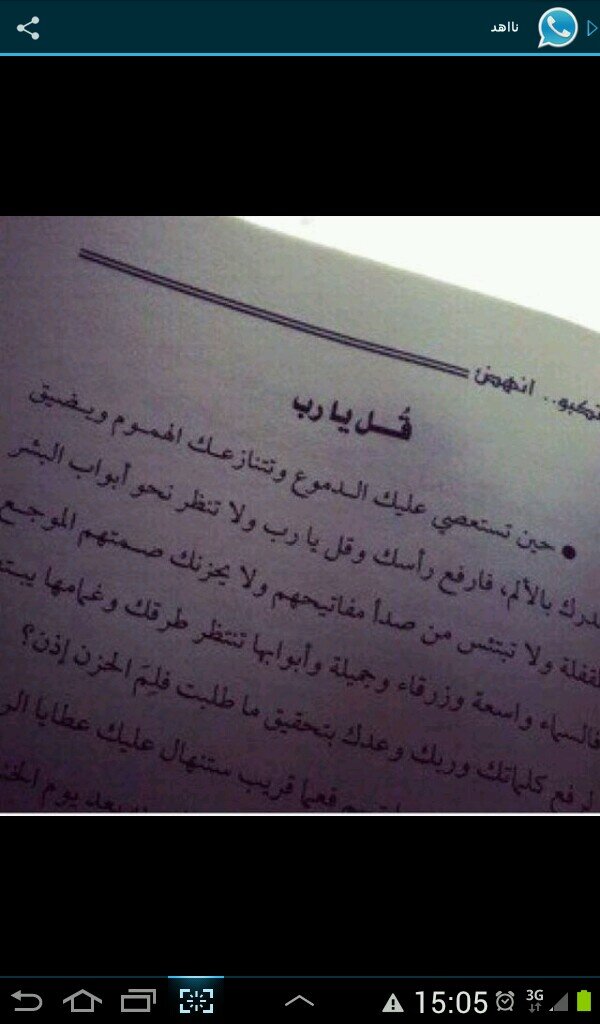 نااهد
.. انهض
قُل يا رب
• حين تستعصي عليك الدموع وتتنازعك الهموم ويضيق
بالألم، فارفع رأسك وقل يا رب ولا تنظر نحو أبواب البشر
ولا تبتئس من صدأ مفاتيحهم ولا يحزنك صمتهم الموجع
فالسماء واسعة وزرقاء وجميلة وأبوابها تنتظر طرقك وغمامها
لرفع كلماتك وربك وعدك بتحقيق ما طلبت فلِمَ الحزن إذن؟
فعما قريب ستنهال عليك عطايا
يوم
15:05
3G